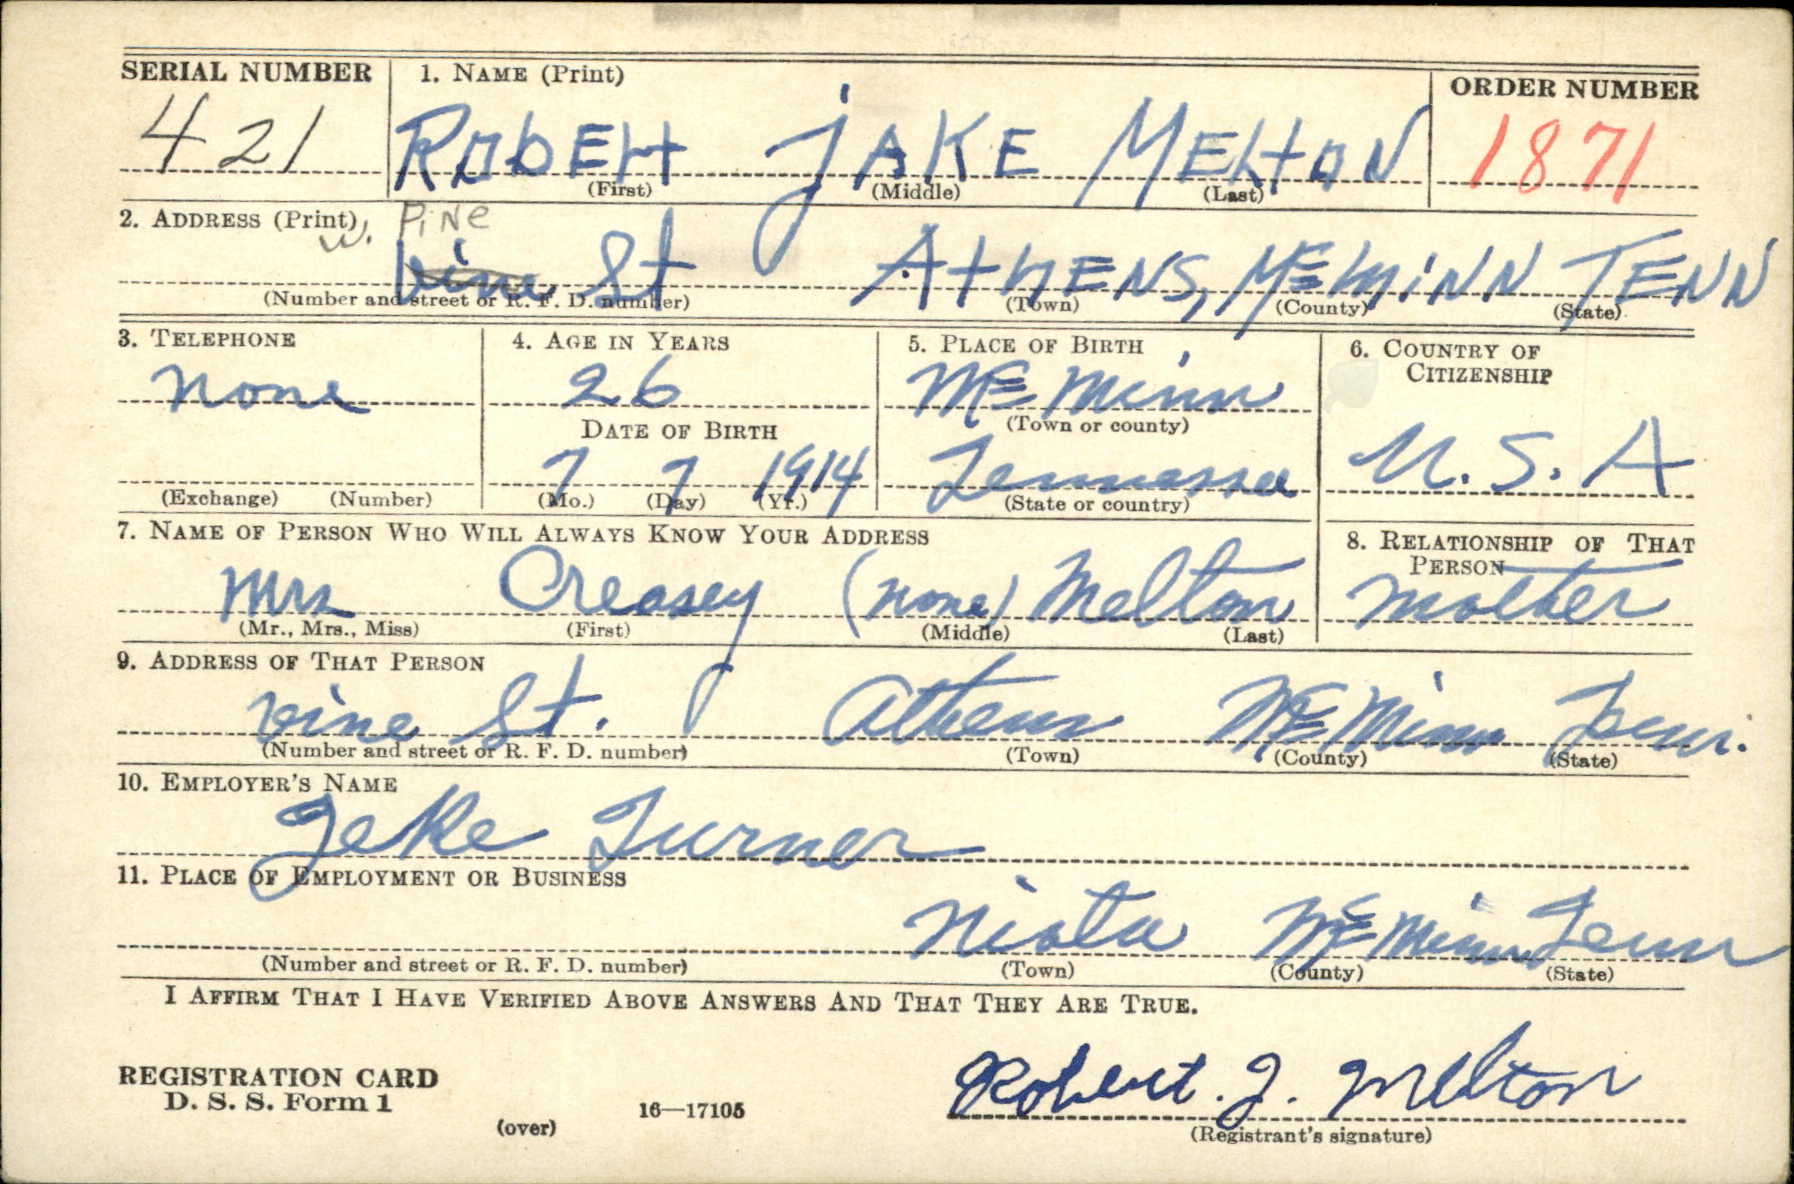 SERIAL NUMBER 1. NAME (Print) ORDER NUMBER
421 ROBERT JAKE MELTON 1871
(First) (Middle) (Last)
2. ADDRESS (Print) W. PiNe
Vine St ATHENS, McMiNN TENN
(Number and street or R. F. D. number) (Town) (County) (State)
3. TELEPHONE 4. AGE IN YEARS 5. PLACE OF BIRTH 6. COUNTRY OF CITIZENSHIP
none 26 McMinn
(Town or county)
DATE OF BIRTH
7 7 1914 Tennessee U.S.A
(Exchange) (Number) (Mo.) (Day) (Yr.) (State or country)
7. NAME OF PERSON WHO WILL ALWAYS KNOW YOUR ADDRESS 8. RELATIONSHIP OF THAT PERSON
Mrs Creasey (none) Melton mother
(Mr., Mrs., Miss) (First) (Middle) (Last)
9. ADDRESS OF THAT PERSON
vine St. Athens McMinn Tenn.
(Number and street or R. F. D. number) (Town) (County) (State)
10. EMPLOYER'S NAME
Jake Turner
11. PLACE OF EMPLOYMENT OR BUSINESS
Niota McMinn Tenn
(Number and street or R. F. D. number) (Town) (County) (State)
I AFFIRM THAT I HAVE VERIFIED ABOVE ANSWERS AND THAT THEY ARE TRUE.
REGISTRATION CARD
D. S. S. Form 1
(over) 16—17105
Robert. J. Melton
(Registrant's signature)